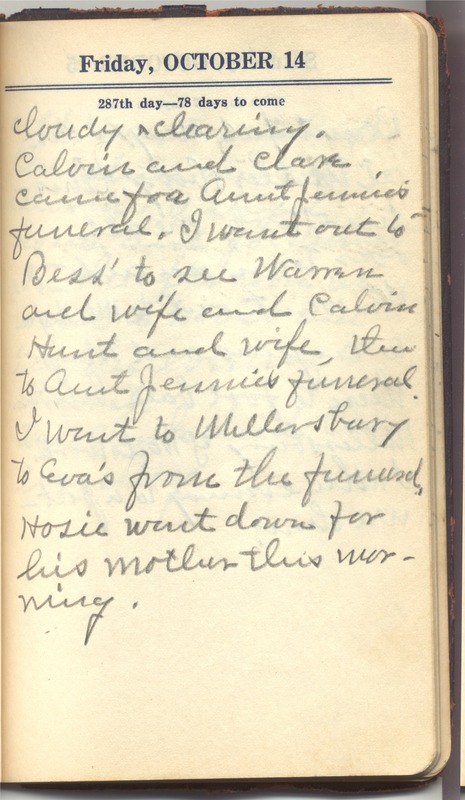 Friday, OCTOBER 14
287th day—78 days to come
cloudy & clearing.
Calvin and Clare
came for Aunt Jennie's
funeral. I went out to
Bess' to see Warren
and wife and Calvin
Hunt and wife, then
to Aunt Jennie's funeral.
I went to Millersburg
to Eva's from the funeral,
Hosie went down for
his mother this mor-
ning.